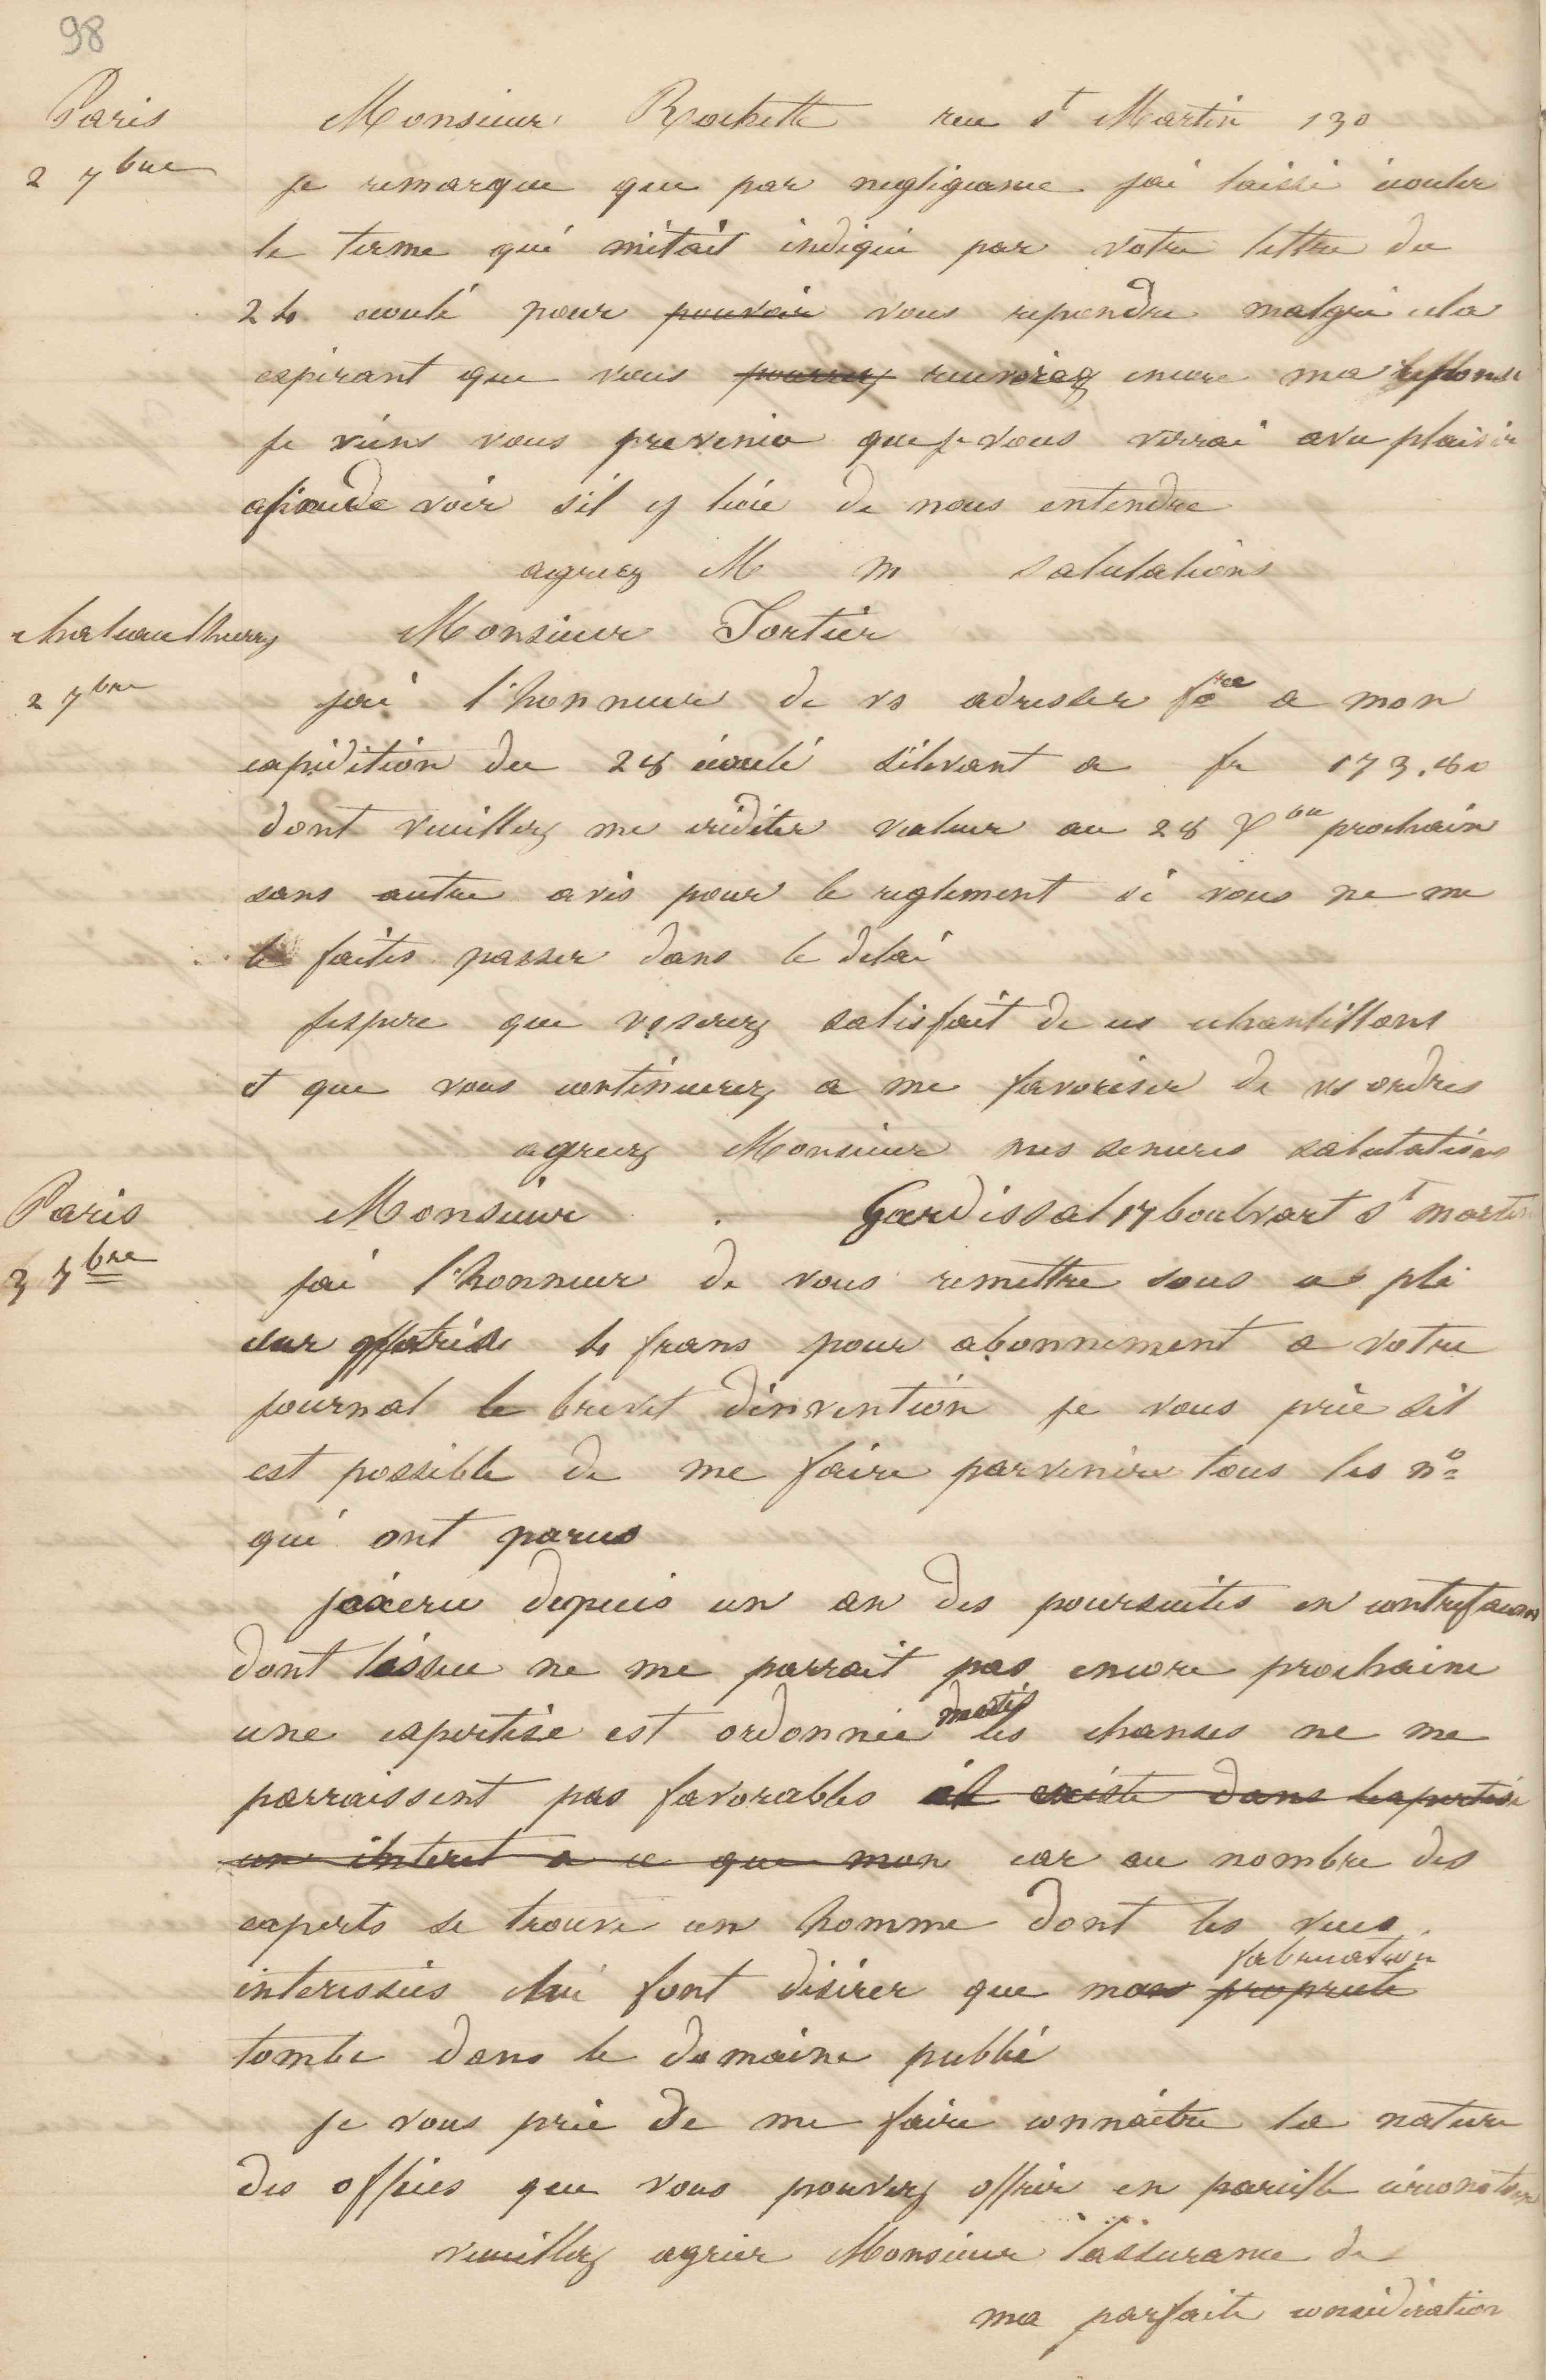 98
Paris
2 7bre
Monsieur Rochette rue St Martin 130
je remarque que par negligeance jai laissé écouler
le terme qui m'etait indiqué par votre lettre du
24 écoulé pour pouvoir vous repondre malgré cela
esperant que vous pourrez recevriez encore ma reponse
je viens vous prevenir que je vous verrai avec plaisir
afin de voir s'il y lieu de nous entendre
agreez M m salutations
chateauthierry
2 7bre
Monsieur Fortier
jai l'honneur de vs adresser fre a mon
expédition du 28 écoulé s'élevant a fr 173.80
dont veuillez me créditer valeur au 28 Xbre prochain
sans autre avis pour le reglement si vous ne me
le faites passer dans le délai
jespere que vs serez satisfait de ces echantillons
et que vous continuerez a me favoriser de vs ordres
agreez Monsieur mes senceres salutations
Paris
3 7bre
Monsieur Gardissal 17 boulvart St martin
jai l'honneur de vous remettre sous ce pli
4 frans pour abonnement a votre
journal le brevet d'invention je vous prie sil
est possible de me faire parvenir tous les no
qui ont parus
jai eu depuis un an des poursuites en contrefacon
dont l'issue ne me parrait pas encore prochaine
une expertise est ordonnée mais les chanses ne me
parraissent pas favorables il existe dans lexpertise
un interet a ce que mon car au nombre des
experts se trouve un homme dont les vues
interessées lui font désirer que ma proprieté fabrication
tombe dans le domaine public
je vous prie de me faire connaitre la nature
des offices que vous pouvez offrir en pareille circonstance
veuillez agréer Monsieur l'assurance de
ma parfaite considération